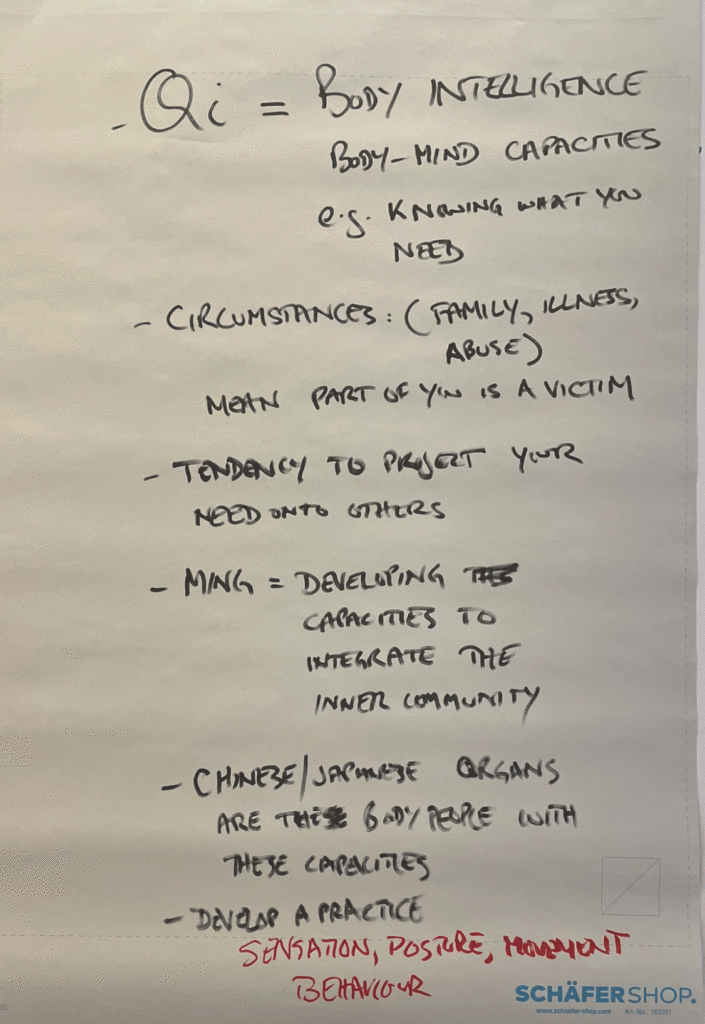 - Qi = BODY INTELLIGENCE
BODY-MIND CAPACITIES
e.g. KNOWING WHAT YOU
NEED
- CIRCUMSTANCES: (FAMILY, ILLNESS,
ABUSE)
MEAN PART OF YOU IS A VICTIM
- TENDENCY TO PROJECT YOUR
NEED ONTO OTHERS
- MING = DEVELOPING
CAPACITIES TO
INTEGRATE THE
INNER COMMUNITY
- CHINESE/JAPANESE ORGANS
ARE THE BODY PEOPLE WITH
THESE CAPACITIES
- DEVELOP A PRACTICE
SENSATION, POSTURE, MOVEMENT
BEHAVIOUR
SCHÄFER SHOP.
www.schaefer-shop.com Art.-No.: 163261